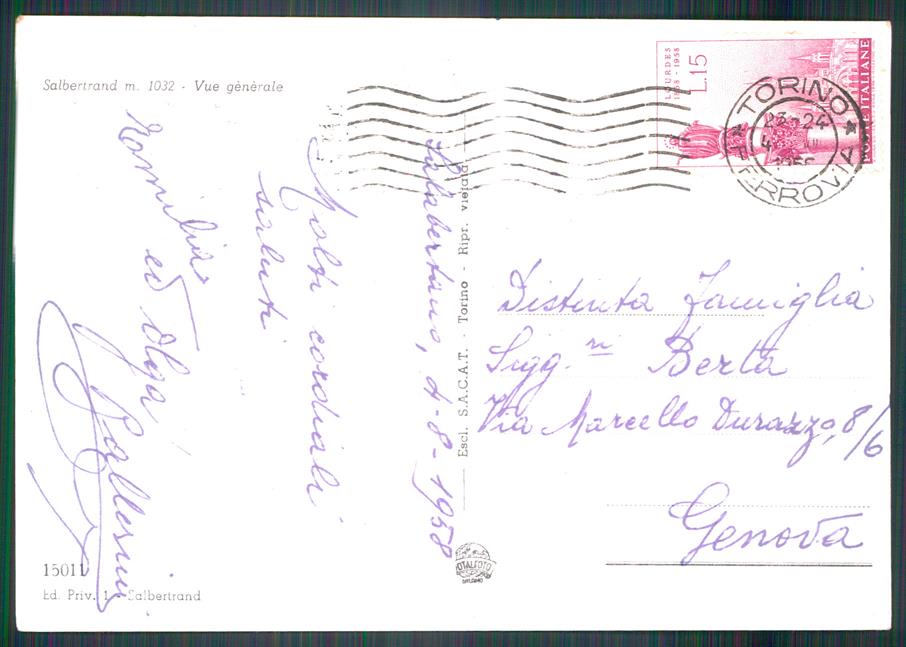 Salbertrand m. 1032 - Vue générale
LOURDES
1858 - 1958
L.15
POSTE ITALIANE
TORINO
FERROVIA
23-24
4
Salabertano, 4-8-1958
Molti cordiali
saluti
ed Olga
Distinta Famiglia
Sigg.ri Berta
Via Marcello Durazzo, 8/6
Genova
Escl. S.A.C.A.T. - Torino - Ripr. vietata
15011
Ed. Priv. 1 - Salbertrand